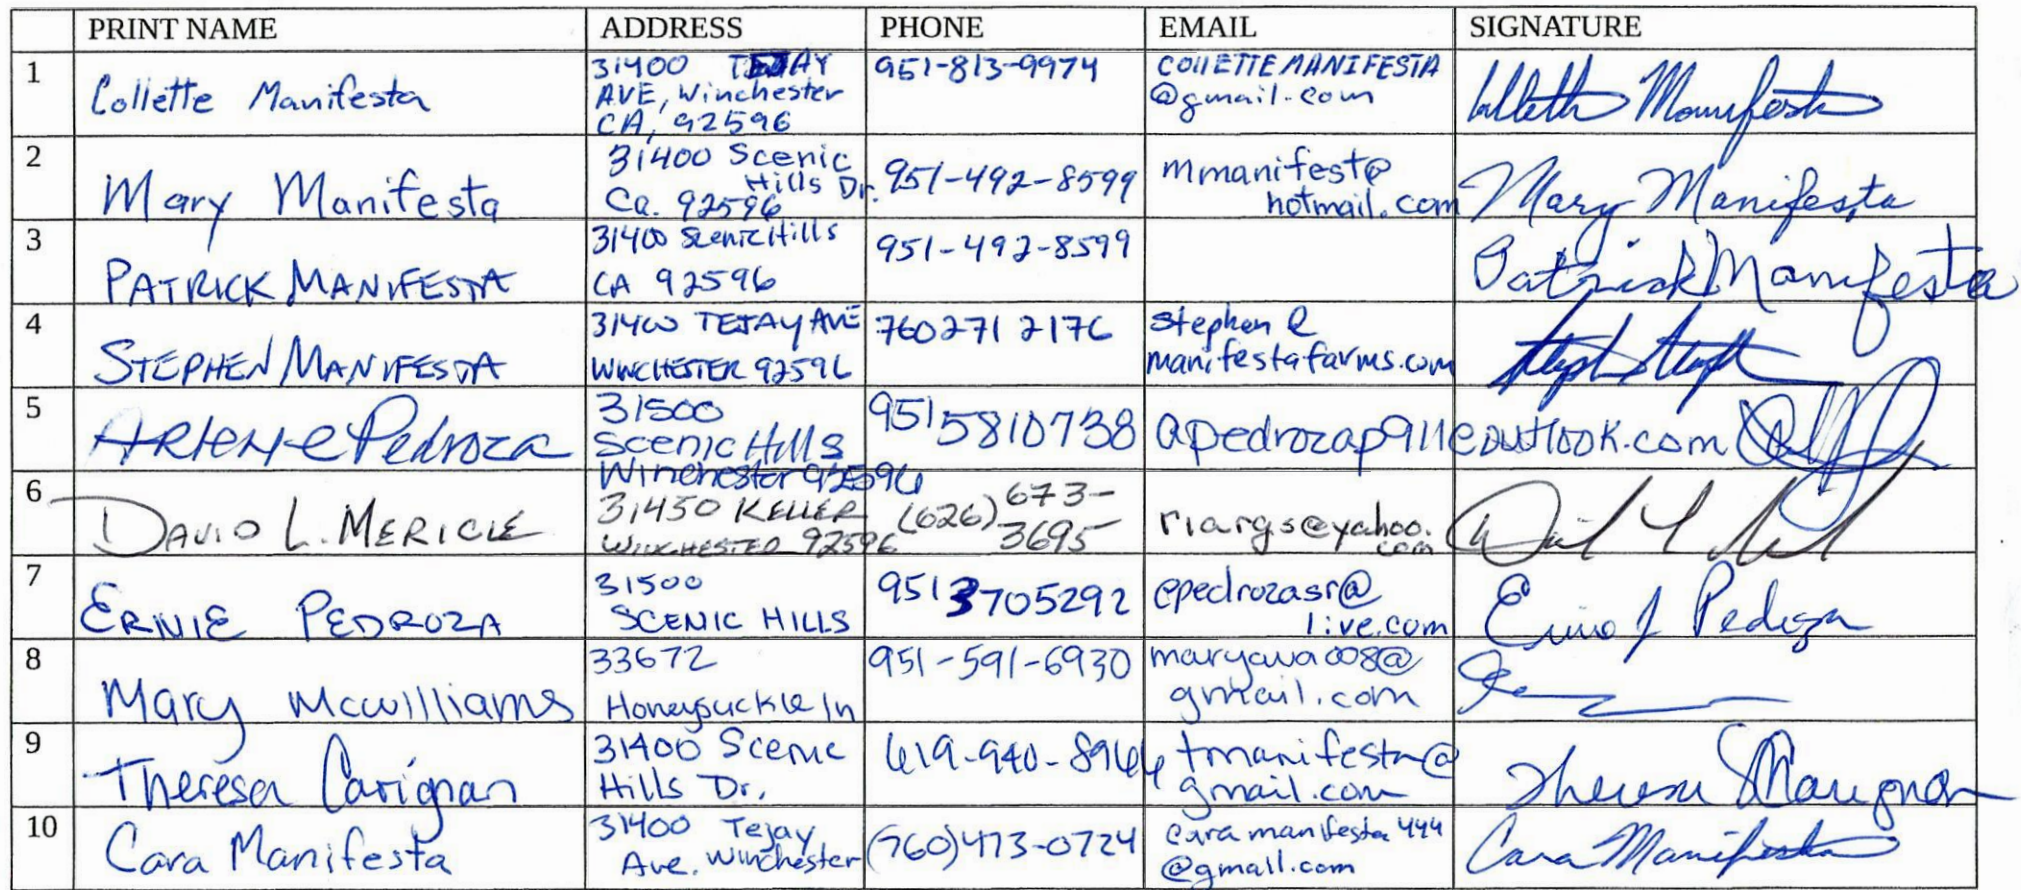 PRINT NAME ADDRESS PHONE EMAIL SIGNATURE
1 Collette Manifesta 31400 TEJAY AVE, Winchester CA, 92596 951-813-9974 COllETTEMANIFESTA @gmail.com Collette Manifesta
2 Mary Manifesta 31400 Scenic Hills Dr. Ca. 92596 951-492-8599 mmanifest@ hotmail.com Mary Manifesta
3 PATRICK MANIFESTA 31400 Scenic Hills CA 92596 951-492-8599 Patrick Manifesta
4 STEPHEN MANIFESTA 31400 TEJAY AVE WINCHESTER 92596 760 271 2176 Stephen @ manifestafarms.com
5 ARlene Pedroza 31500 Scenic Hills Winchester 92596 951 5810738 apedrozap911@outlook.com
6 DAVID L. MERICLE 31450 KELLER WINCHESTER 92596 (626) 673-3695 rlargs@yahoo.com
7 ERNIE PEDROZA 31500 SCENIC HILLS 951 3705292 epedrozasr@ live.com Ernie J Pedroza
8 Mary McWilliams 33672 Honeysuckle ln 951-591-6930 maryava008@ gmail.com
9 Theresa Carignan 31400 Scenic Hills Dr. 619-940-8966 tmanifesta@ gmail.com Theresa Carignan
10 Cara Manifesta 31400 Tejay Ave. Winchester (760)473-0724 caramanifesta444 @gmail.com Cara Manifesta